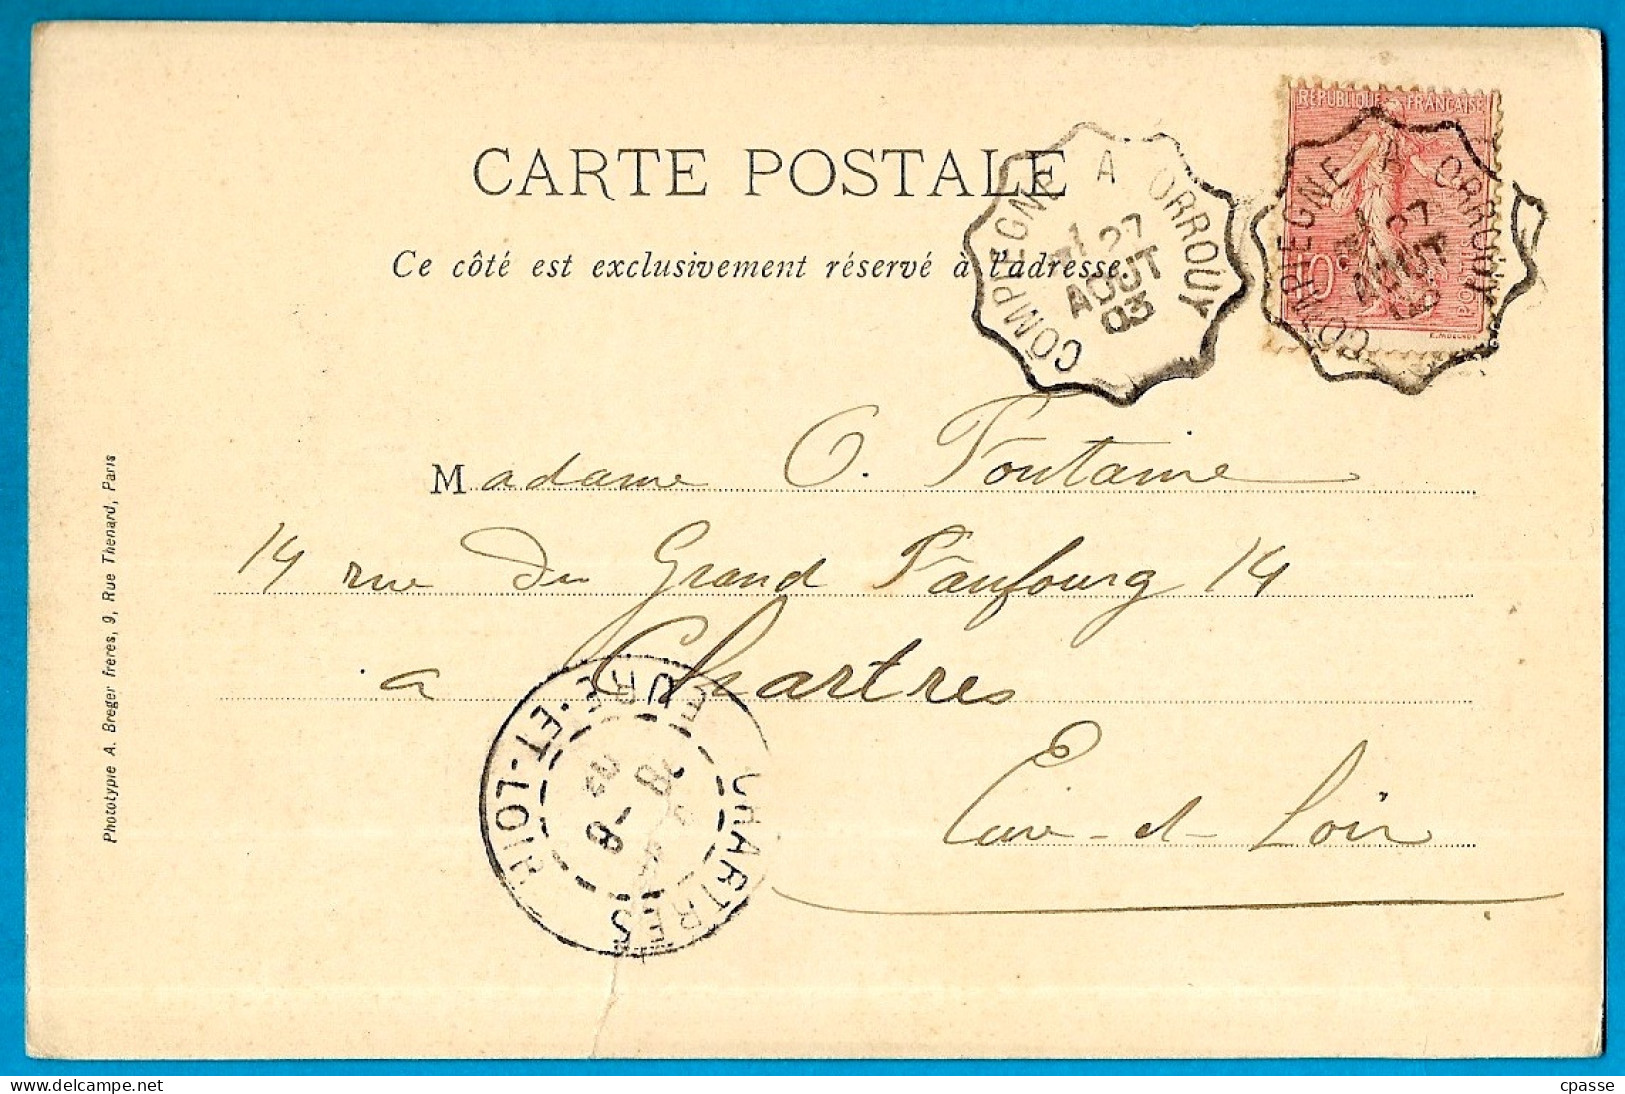 RÉPUBLIQUE FRANÇAISE
10
POSTES
CARTE POSTALE
Ce côté est exclusivement réservé à l'adresse.
COMPIEGNE A ORROUY
27
AOUT
03
COMPIEGNE A ORROUY
27
AOUT
Madame O. Fontaine
14 rue du Grand Faubourg 14
a Chartres
Eure-et-Loir
CHARTRES
EURE-ET-LOIR
Phototypie A. Breger frères, 9, Rue Thenard, Paris
© cpasse